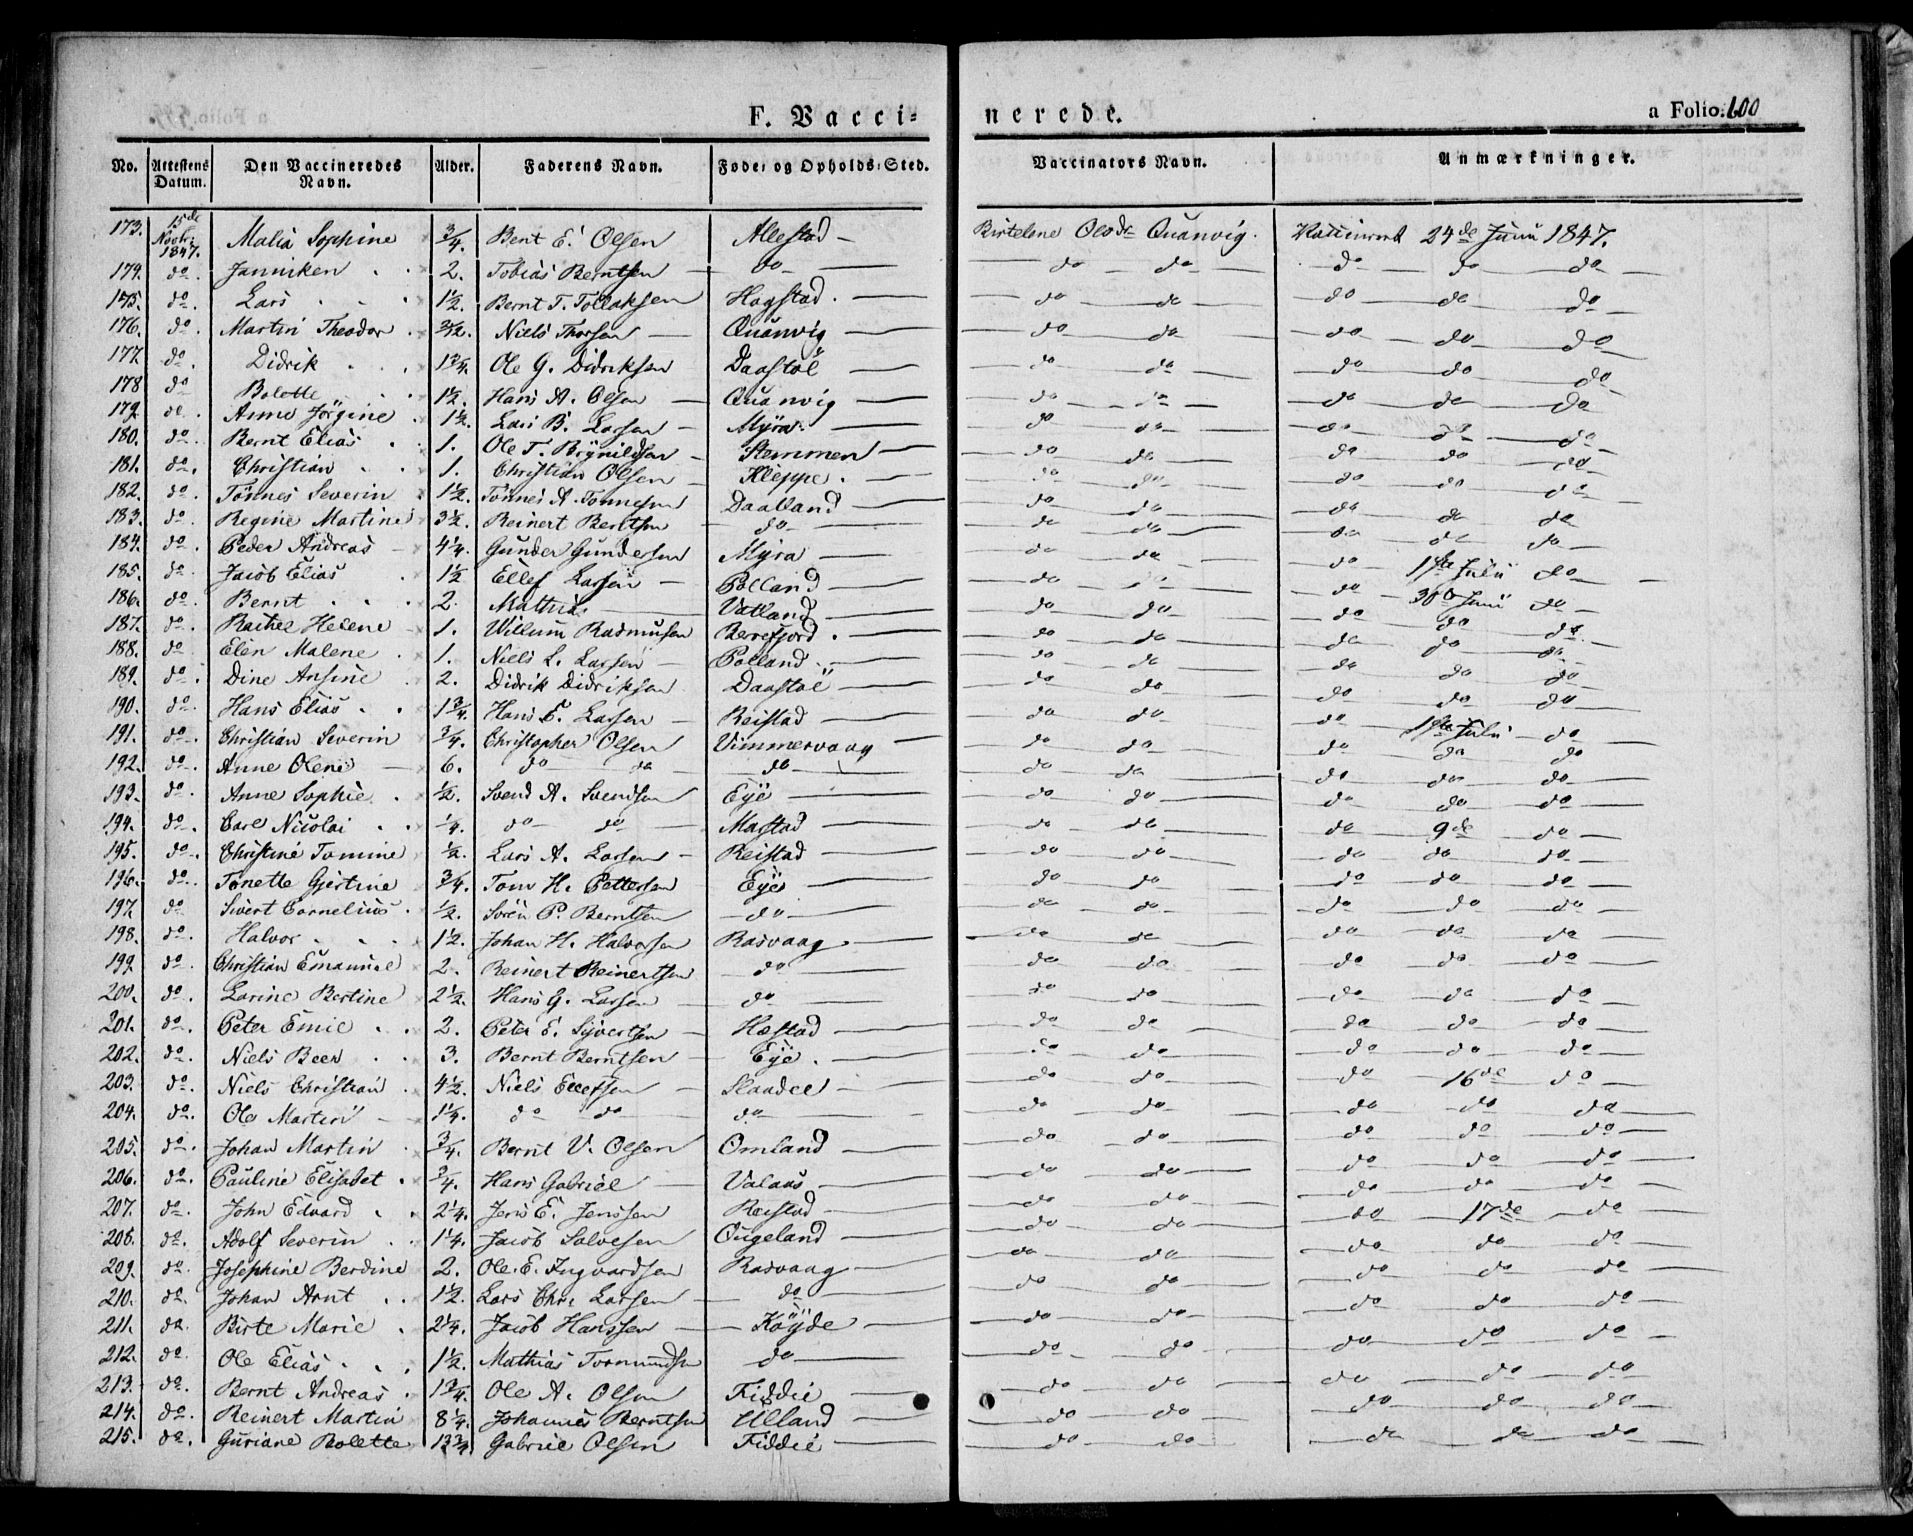 F. Vacci-nerede. a Folio: 600
No. Attestens Datum. Den Vaccineredes Navn. Alder. Faderens Navn. Føde- og Opholds-Sted. Vaccinators Navn. Anmærkninger.
173. 15de Novbr: 1847. Malia Sophine 3/4. Bent E. Olsen Allestad Birtelene Olsdr Quanvig. 24de Junii 1847.
174. do. Janniken 2. Tobias Berntsen do do do do do do
175. do. Lars 1 1/2. Bernt T. Tollaksen Hogstad. do do do do do
176. do. Martin Theodor Niels Thorsen Quanvig do do do do do
177. do. Didrik 1 3/4. Ole G. Didriksen Daastöl do do do do do
178 do Bolette 1 1/2. Hans A. Olsen Quanvig do do do do do
179. do. Anne Jörgine 1 1/2. Lars B. Larsen Mÿra. do do do do do
180. do. Bernt Elias 1. Ole T. Brÿnildsen Stemmen do do do do do
181. do. Christian 1. Christian Olsen Kleppe. do do do do do
182. do. Tönnes Severin 1 1/2. Tönnes A. Tönnesen Daatland do do do do do
183. do. Regine Martine 3 1/2. Reinert Berntsen do do do do do do
184. do. Peder Andreas 4 1/4. Gunder Gundersen Mÿra do do do do do
185. do. Jacob Elias 1 1/2 Ellef Larsen Polland do do do 1ste Julii do
186. do. Bernt 2. Mathias Vatland do do do 30te Junii do
187. do. Rachel Helene 1. Willum Rasmusen Berrefjord. do do do do do
188. do Elen Malene 1. Niels L. Larsen Polland do do do do do
189. do. Dine Ansine 2. Didrik Didriksen Daastöl do do do do do
190. do. Hans Elias 1 3/4. Hans E. Larsen Reistad do do do do do
191. do. Christian Severin 3/4. Christopher Olsen Vimmervaag do do do 1ste Julii do
192. do. Anne Olene 6. do do do do do do do do
193. do. Anne Sophie 1/2. Svend A. Svendsen Eÿe do do do do do
194. do. Carl Nicolai 1/4. do do Mastad do do do do do
195. do. Christine Tomine 1/2. Lars A. Larsen Reistad do do do 9de do
196. do. Tonette Gjertine 3/4. Tom H. Pettersen Eÿe do do do do do
197. do Sivert Cornelius 1/2. Sören P. Berntsen do do do do do do
198. do. Halvor 1 1/2. Johan H. Halvorsen Rasvaag. do do do do do
199. do. Christian Emanuel 2. Reinert Reinertsen do do do do do do
200. do. Larine Bertine 2 1/2. Hans G. Larsen do do do do do do
201. do. Peter Emil 2. Peter E. Sÿvertsen Hestad do do do do do
202. do. Niels Beer 3. Bernt Berntsen Eÿe. do do do do do
203. do. Niels Christian 4 1/2. Niels Ellefsen Slaadel do do do 16de do
204. do. Ole Martin 1 1/4. do do do do do do do do
205. do. Johan Martin 3/4. Bernt V. Olsen Omland do do do do do
206. do. Pauline Elisabet 3/4. Hans Gabriel Valaas do do do do do
207. do. John Edvard 2 1/4. Jens E. Jenssen Reistad do do do 17de do
208. do. Adolf Severin 1 1/4. Jacob Salvesen Ougeland do do do do do
209. do. Josephine Berdine 2. Ole. E. Ingvardsen Rasvaag do do do do do
210. do. Johan Arnt 1 1/2. Lars Chr. Larsen do do do do do do
211. do. Birte Marie 2 1/4. Jacob Hanssen Köÿde do do do do do
212. do. Ole Elias 1 1/2. Mathias Tormundsen do do do do do do
213. do. Bernt Andreas 1 3/4. Ole A. Olsen Fiddie do do do do do
214. do. Reinert Martin 8 1/4. Johannes Berntsen Ulland do do do do do
215. do. Guriane Bolette 13 3/4 Gabriel Olsen Fiddie do do do do do